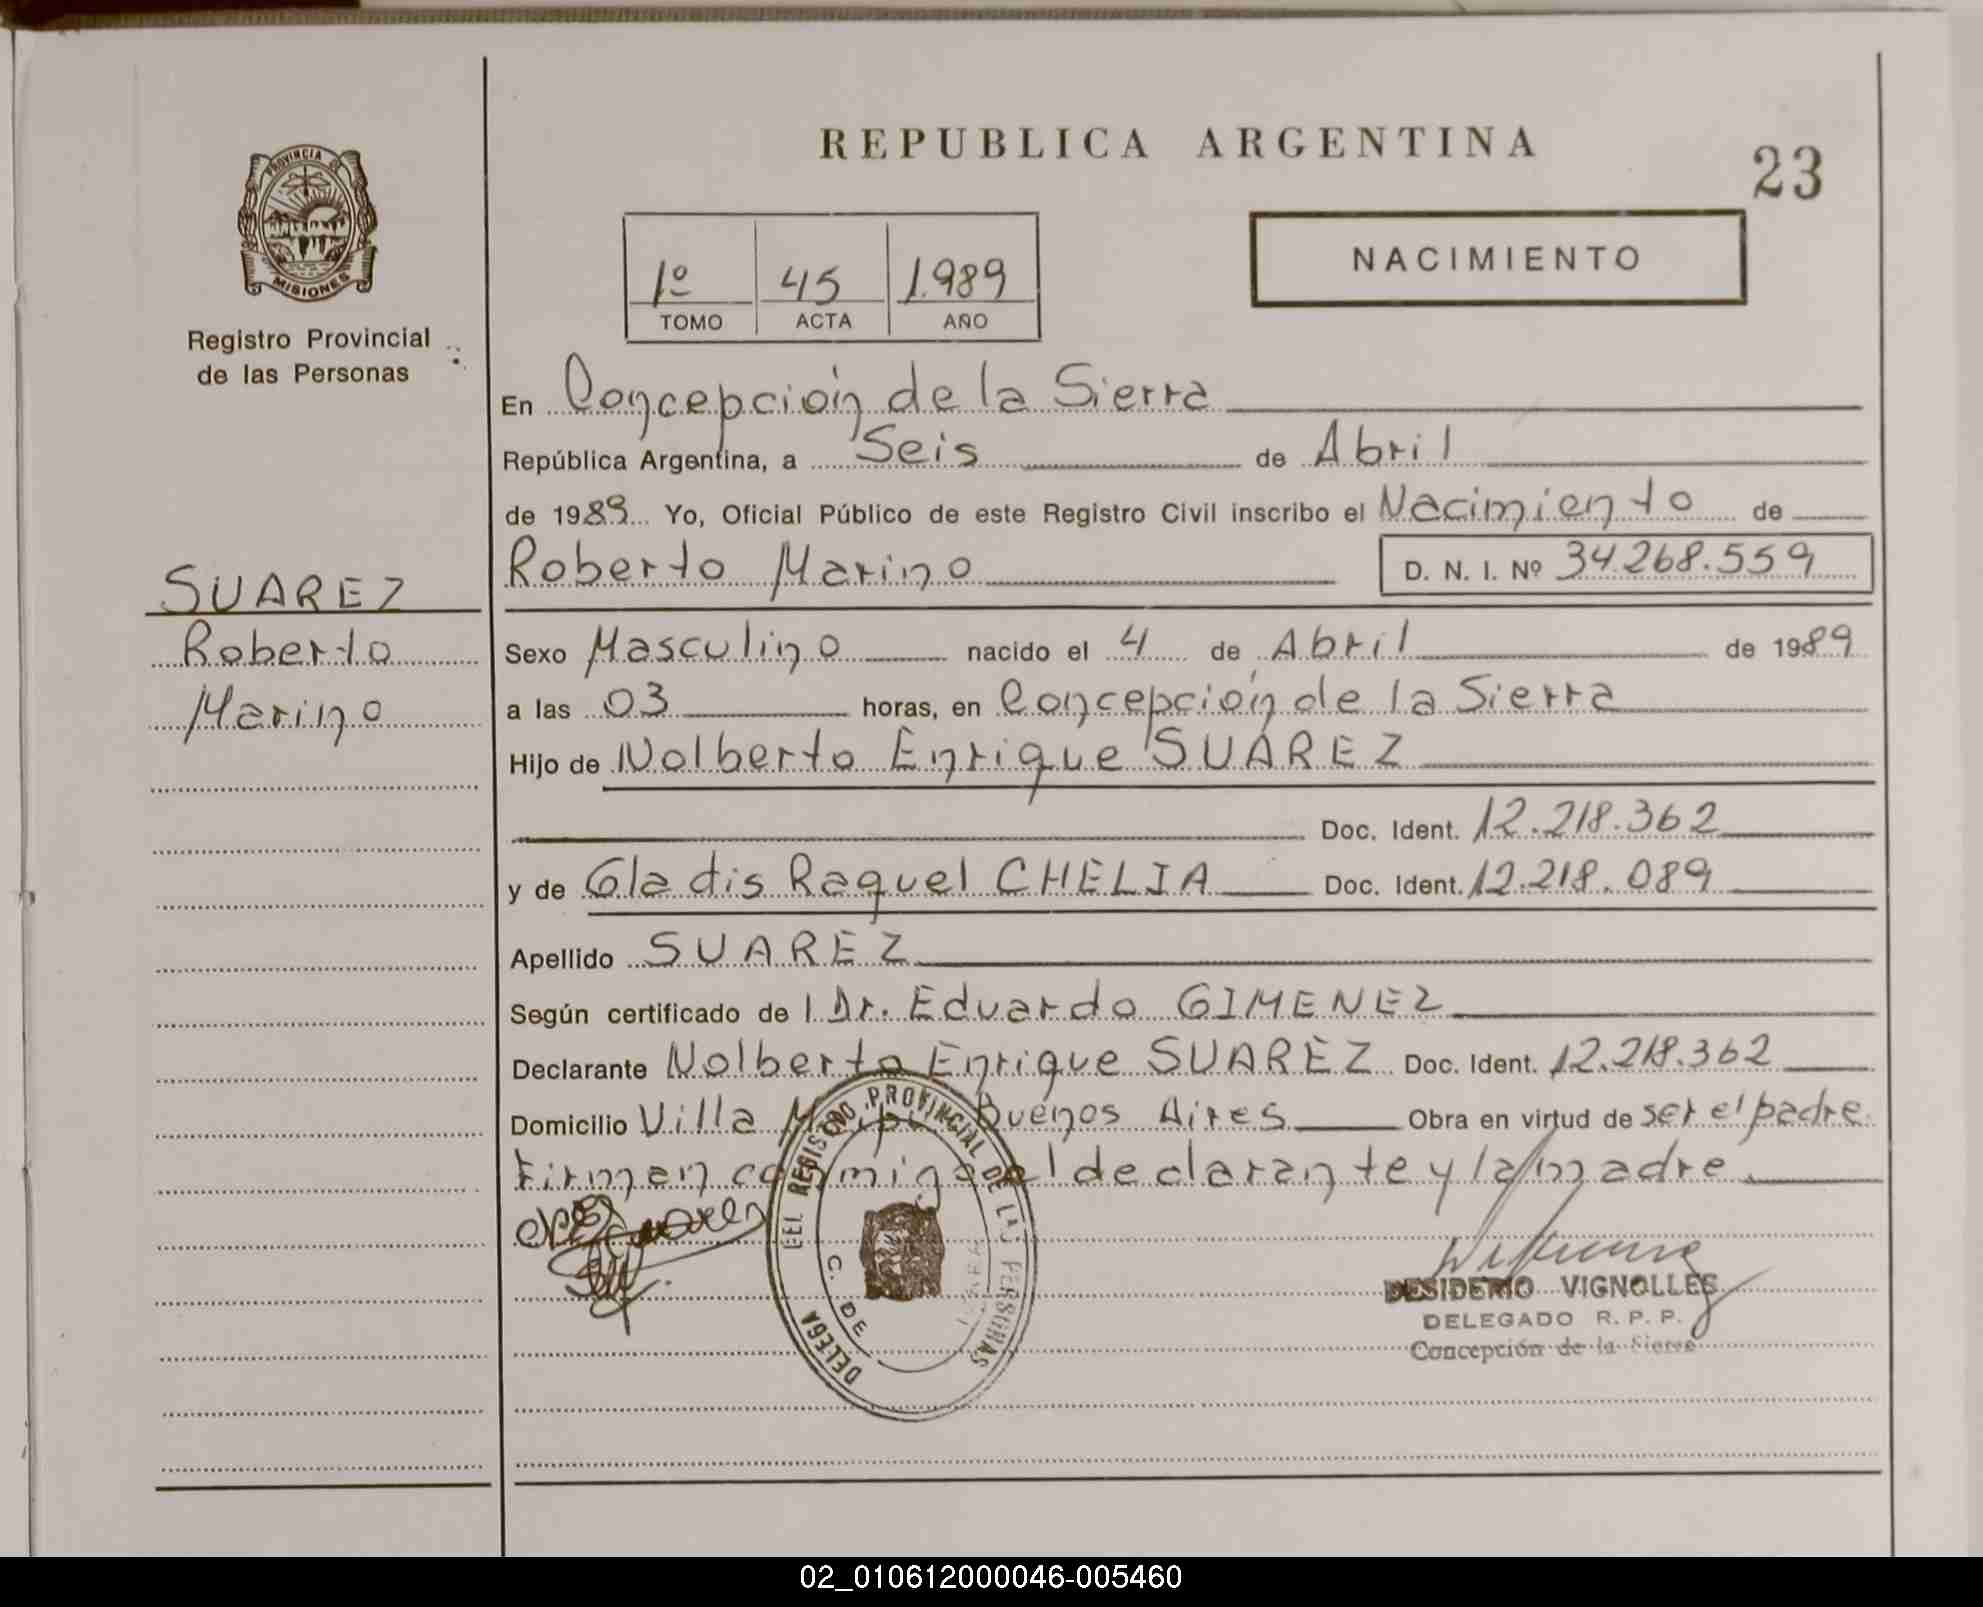 REPUBLICA ARGENTINA
23
PROVINCIA DE
MISIONES
Registro Provincial
de las Personas
1º 45 1.989
TOMO ACTA AÑO
NACIMIENTO
En Concepción de la Sierra
República Argentina, a Seis de Abril
de 1989 Yo, Oficial Público de este Registro Civil inscribo el Nacimiento de
Roberto Marino D. N. I. Nº 34.268.559
SUAREZ
Roberto
Marino
Sexo Masculino nacido el 4 de Abril de 1989
a las 03 horas, en Concepción de la Sierra
Hijo de Nolberto Enrique SUAREZ
Doc. Ident. 12.218.362
y de Gladis Raquel CHELIA Doc. Ident. 12.218.089
Apellido SUAREZ
Según certificado de l Dr. Eduardo GIMENEZ
Declarante Nolberto Enrique SUAREZ Doc. Ident. 12.218.362
Domicilio Villa Buenos Aires Obra en virtud de ser el padre
Firman conmigo el declarante y la madre
DELEGA DEL REGISTRO PROVINCIAL DE LAS PERSONAS
C. DE
DESIDERIO VIGNOLLES
DELEGADO R. P. P.
Concepción de la Sierra
02_010612000046-005460